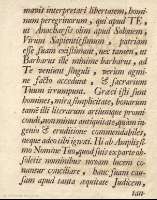 mavis interpretari libertatem, homi-
num peregrinorum, qui apud TE,
ut Anacharsis olim apud Solonem,
Virum Sapientissimum, patriam
esse suam existimant, nec tamen, ut
Barbarus ille minime barbarus, ad
Te veniunt singuli, verum agmi-
ne facto accedunt, & sacrarium
Tuum irrumpunt. Graci isti sunt
homines, mira simplicitate, bonarum
tamen illi literarum artiumque promti
condi, non minus antiquitate, quam in-
genio & eruditione commendabiles,
neque adeo tibi ignoti. Hi ab Auspicatis-
simo Nomine Tuo, quasi situ ex parte ob-
soletis nominibus novam lucem co-
nantur conciliare, hanc suam cau-
sam apud tanta aequitate Judicem,
tan-